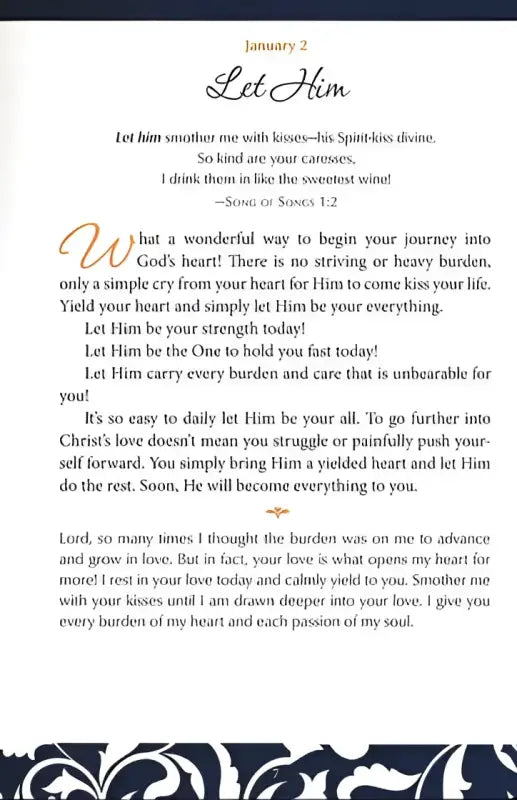 January 2
Let Him
Let him smother me with kisses—his Spirit-kiss divine.
So kind are your caresses,
I drink them in like the sweetest wine!
—Song of Songs 1:2
What a wonderful way to begin your journey into
God's heart! There is no striving or heavy burden,
only a simple cry from your heart for Him to come kiss your life.
Yield your heart and simply let Him be your everything.
Let Him be your strength today!
Let Him be the One to hold you fast today!
Let Him carry every burden and care that is unbearable for
you!
It's so easy to daily let Him be your all. To go further into
Christ's love doesn't mean you struggle or painfully push your-
self forward. You simply bring Him a yielded heart and let Him
do the rest. Soon, He will become everything to you.
Lord, so many times I thought the burden was on me to advance
and grow in love. But in fact, your love is what opens my heart for
more! I rest in your love today and calmly yield to you. Smother me
with your kisses until I am drawn deeper into your love. I give you
every burden of my heart and each passion of my soul.
7